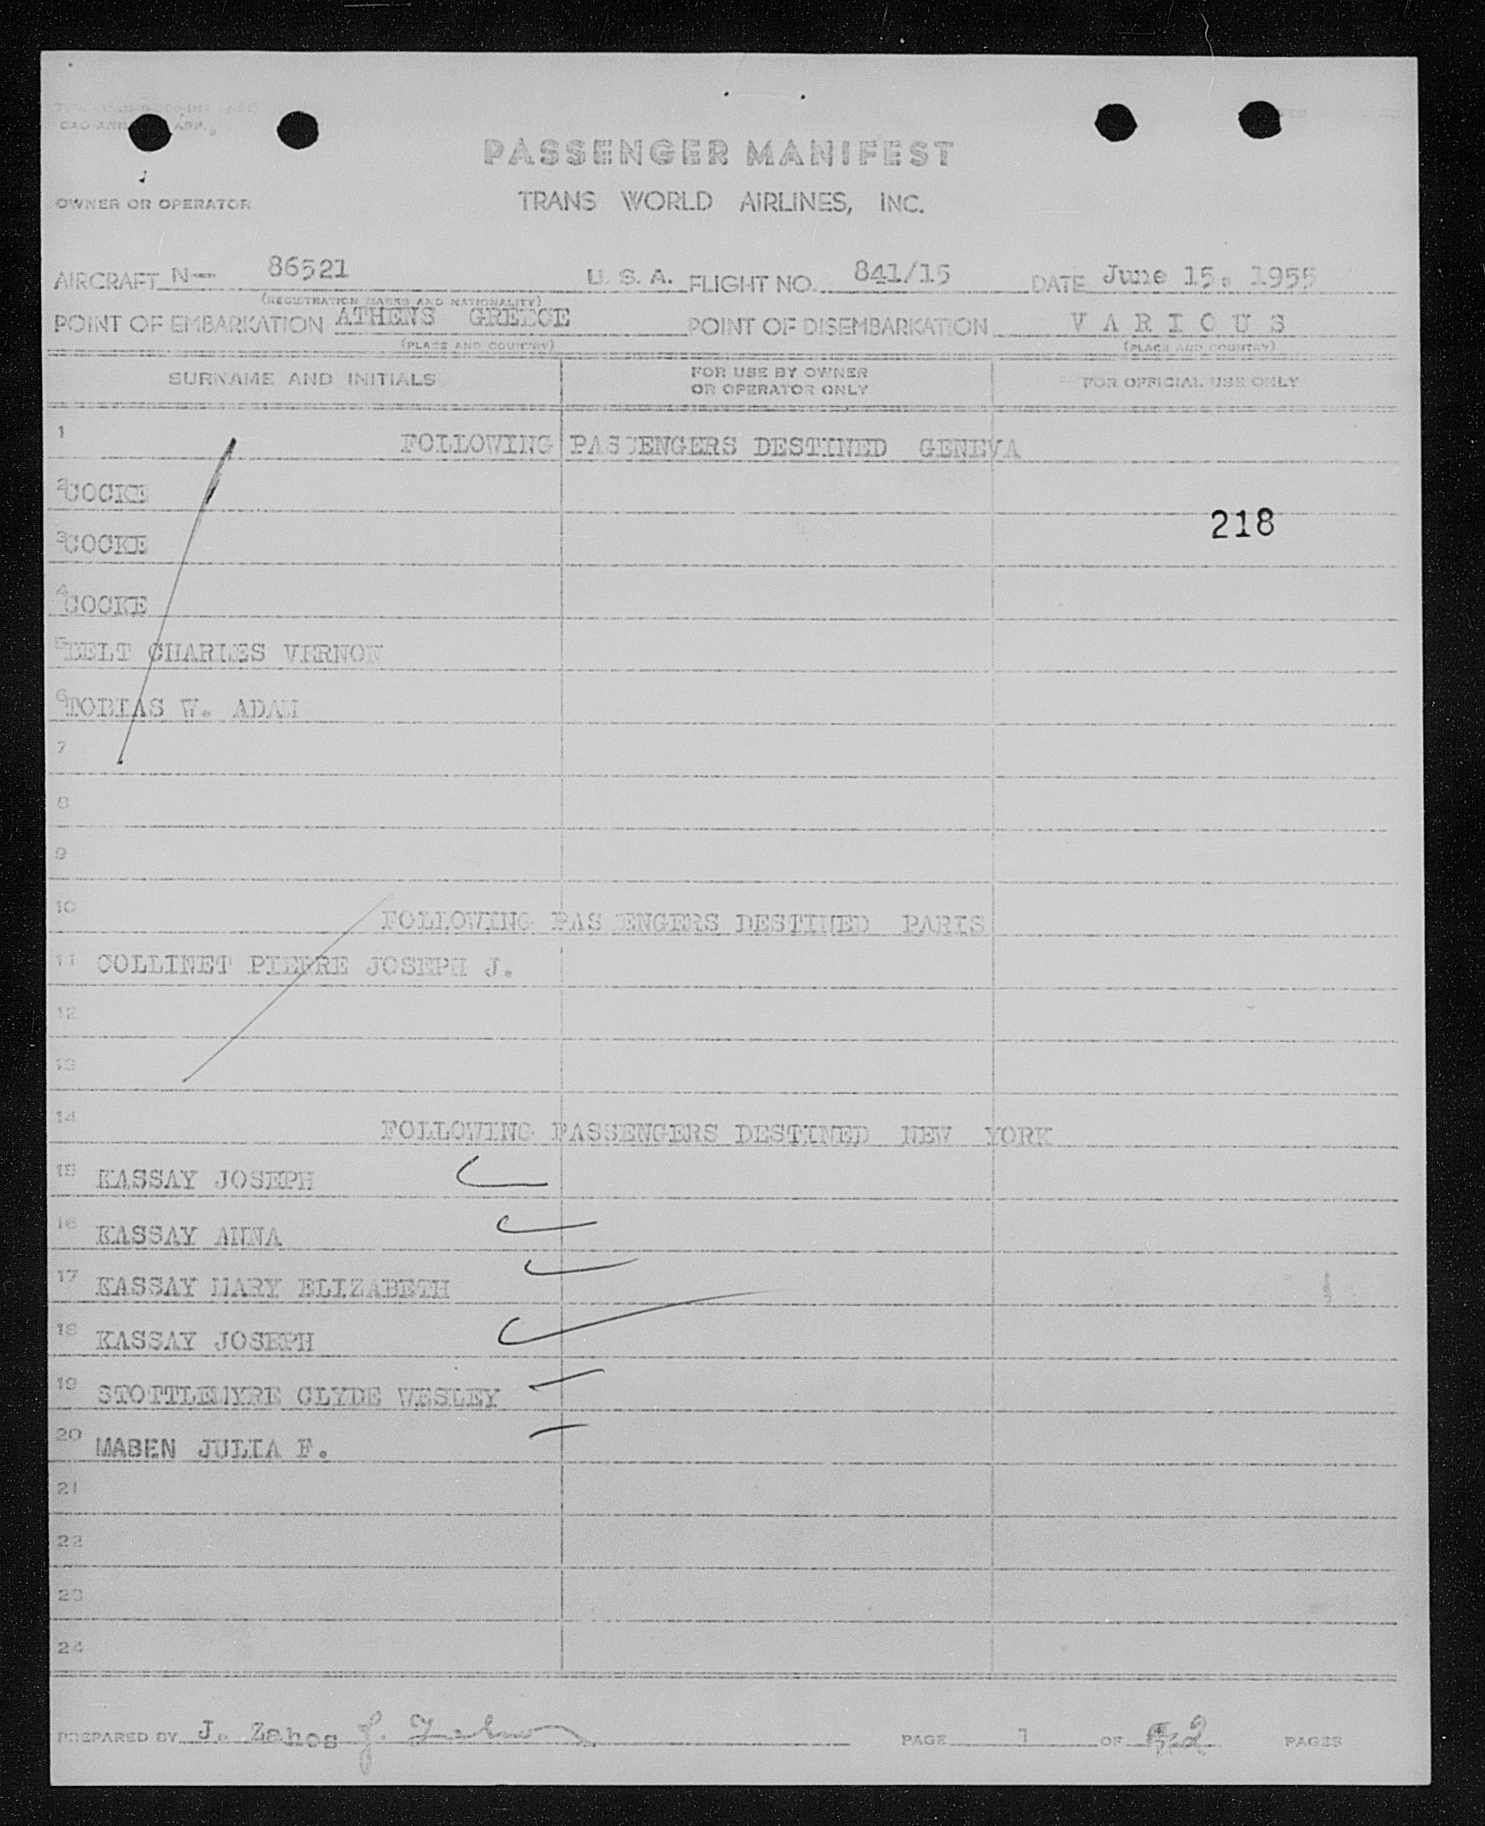 PASSENGER MANIFEST
OWNER OR OPERATOR TRANS WORLD AIRLINES, INC.
AIRCRAFT N— 86521 U. S. A. FLIGHT NO. 841/15 DATE June 15. 1955
(REGISTRATION MARKS AND NATIONALITY)
POINT OF EMBARKATION ATHENS GREECE POINT OF DISEMBARKATION V A R I O U S
(PLACE AND COUNTRY) (PLACE AND COUNTRY)
SURNAME AND INITIALS FOR USE BY OWNER OR OPERATOR ONLY FOR OFFICIAL USE ONLY
1 FOLLOWING PASSENGERS DESTINED GENEVA
2 COCKE
218
3 COCKE
4 COCKE
5 BELT CHARLES VERNON
6 TOBIAS W. ADAM
7
8
9
10 FOLLOWING PAS ENGERS DESTINED PARIS
11 COLLINET PIERRE JOSEPH J.
12
13
14 FOLLOWING PASSENGERS DESTINED NEW YORK
15 KASSAY JOSEPH
16 KASSAY ANNA
17 KASSAY MARY ELIZABETH
18 KASSAY JOSEPH
19 STOTTLEMYRE CLYDE WESLEY
20 MABEN JULIA F.
21
22
23
24
PREPARED BY J. Zahos J. Zahos PAGE 1 OF 2 PAGES